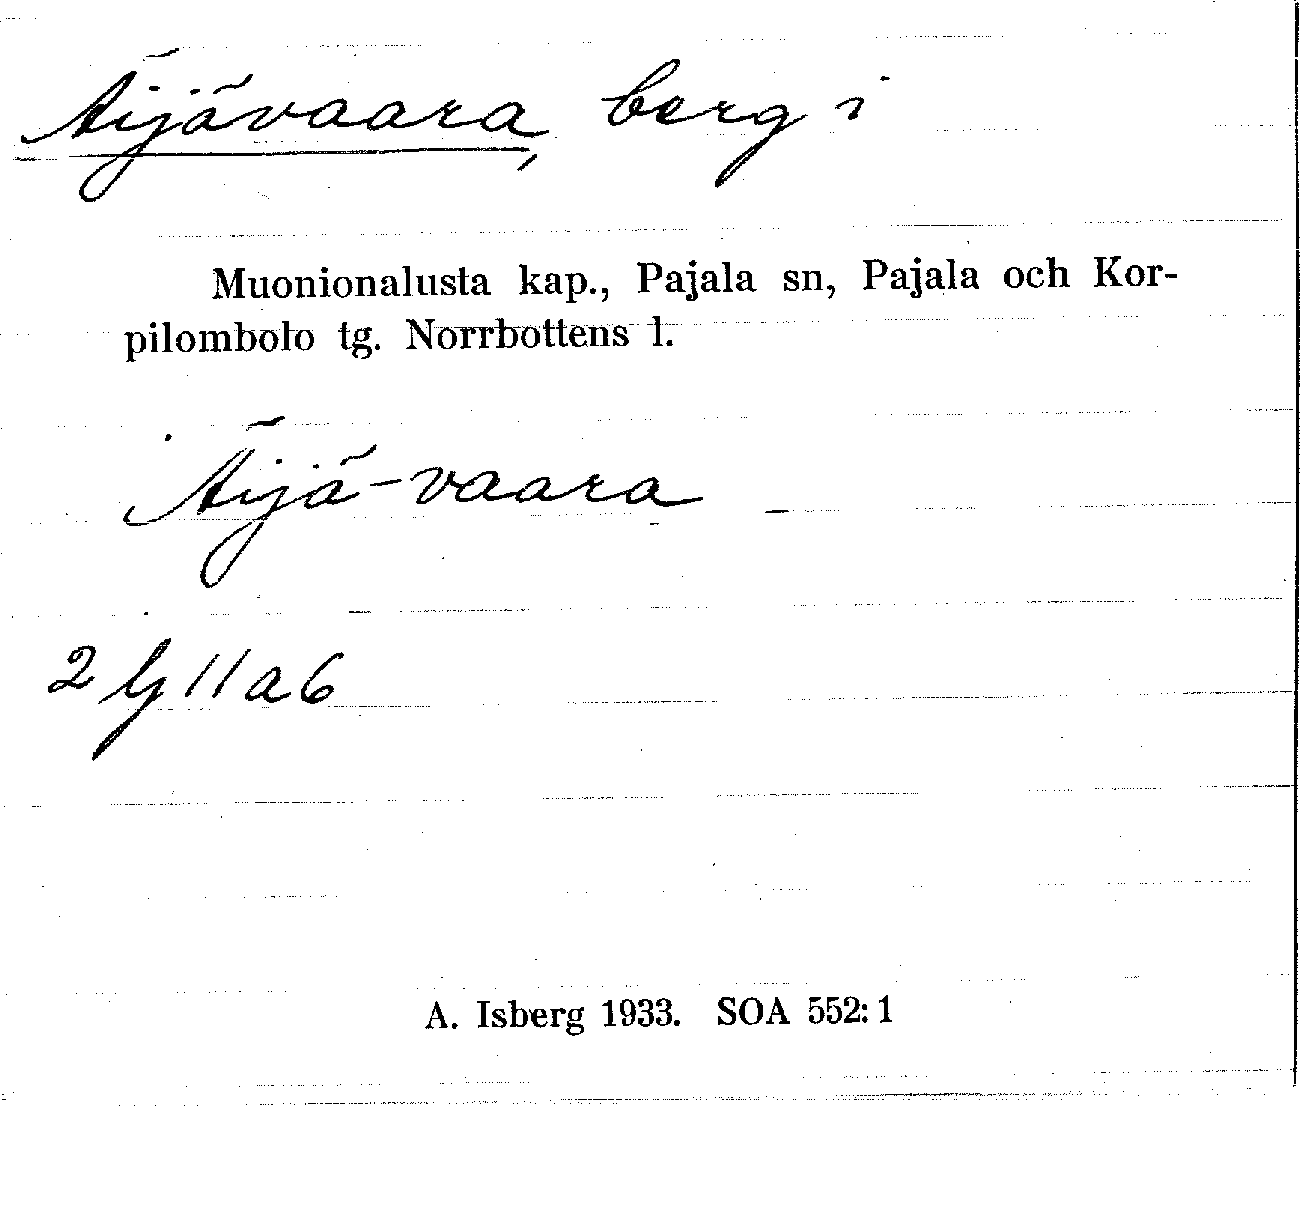 Äijävaara, berg i
Muonionalusta kap., Pajala sn, Pajala och Kor-
pilombolo tg. Norrbottens l.
Äijä-vaara
2 ly 11 a 6
A. Isberg 1933. SOA 552: 1